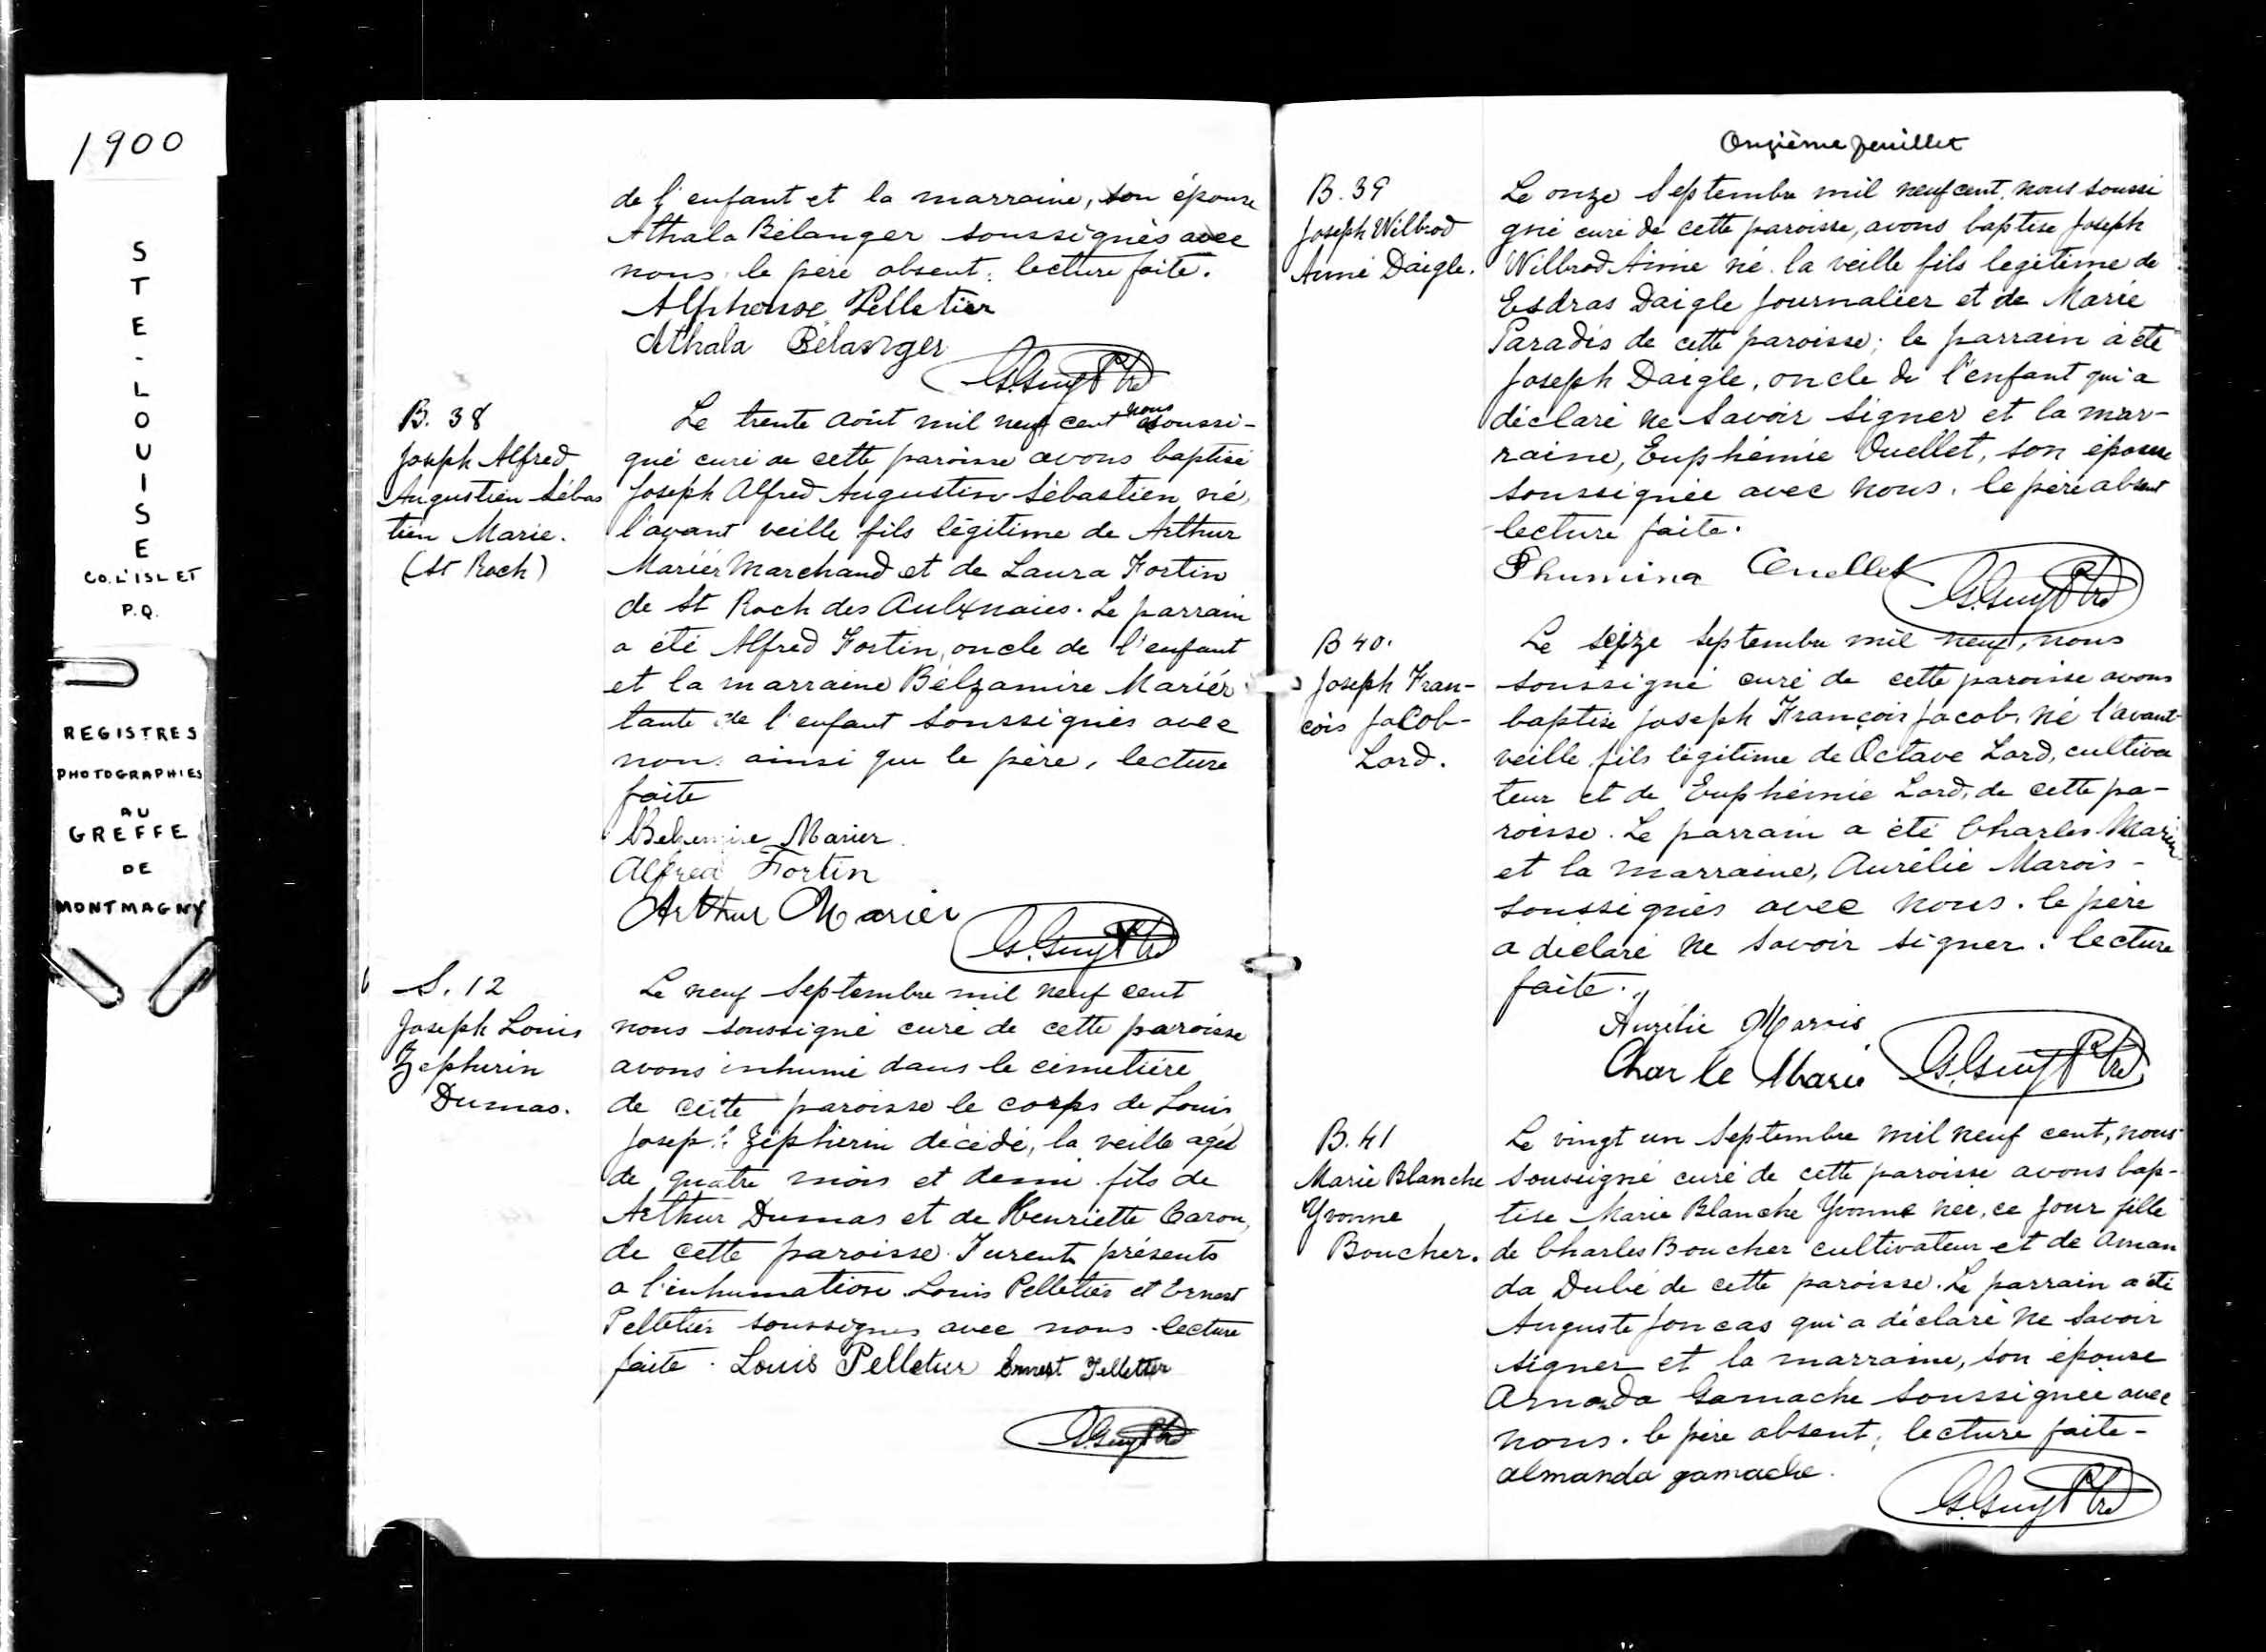 1900
STE-LOUISE
CO. L'ISLET
P.Q.
REGISTRES
PHOTOGRAPHIES
AU
GREFFE
DE
MONTMAGNY
de l'enfant et la marraine, son épouse
Athala Bélanger soussignés avec
nous le père absent. lecture faite.
Alphonse Pelletier
Athala Bélanger
G. Guy Ptre
B. 38
Joseph Alfred
Augustien Sébas
tien Marie.
(St Roch)
Le trente août mil neuf cent nous soussi-
gné curé de cette paroisse avons baptisé
Joseph Alfred Augustin Sébastien né,
l'avant veille fils légitime de Arthur
Mariér Marchand et de Laura Fortin
de St Roch des Aulnaies. Le parrain
a été Alfred Fortin, oncle de l'enfant
et la marraine Bélzamire Mariér
tante de l'enfant soussignés avec
nou ainsi que le père, lecture
faite
Marier
Alfred Fortin
Arthur Marier
G. Guy Ptre
S. 12
Joseph Louis
Zephirin
Dumas.
Le neuf Septembre mil neuf cent
nous soussigné curé de cette paroisse
avons inhumé dans le cimetière
de cette paroisse le corps de Louis
Joseph Zéphirin décédé, la veille agé
de quatre mois et demi fils de
Arthur Dumas et de Henriette Caron,
de cette paroisse. Furent présents
a l'inhumation Louis Pelletier et Ernest
Pelletier soussignes avec nous lecture
faite. Louis Pelletier Ernest Pelletier
G. Guy Ptre
Onzième feuillet
B. 39
Joseph Wilbrod
Aimé Daigle.
Le onze Septembre mil neuf cent, nous soussi
gné curé de cette paroisse, avons baptisé Joseph
Wilbrod Aimé né la veille fils legitime de
Esdras Daigle Journalier et de Marie
Paradis de cette paroisse; le parrain a été
Joseph Daigle, oncle de l'enfant qui a
déclaré ne savoir signer et la mar-
raine, Euphémie Ouellet, son épouse
soussignée avec nous. le père absent
lecture faite.
Phumina Ouellet
G. Guy Ptre
B 40.
Joseph Fran-
çois Jacob-
Lord.
Le seize septembre mil neuf, nous
soussigné curé de cette paroisse avons
baptisé Joseph François Jacob, né l'avant-
veille fils légitime de Octave Lord, cultiva
teur et de Euphémie Lord, de cette pa-
roisse. Le parrain a été Charles Marier
et la marraine, Aurélie Marois -
soussignés avec nous. le père
a déclaré ne savoir signer. lecture
faite.,
Aurélie Marois
Charle Marié
G. Guy Ptre
B. 41
Marie Blanche
Yvonne
Boucher.
Le vingt un Septembre mil neuf cent, nous
soussigné curé de cette paroisse avons bap-
tisé Marie Blanche Yvonne née, ce jour fille
de Charles Boucher cultivateur et de Aman
da Dubé de cette paroisse. Le parrain a été
Auguste Joncas qui a déclaré ne savoir
signer et la marraine, son épouse
Amanda Gamache soussignée avec
nous. le père absent, lecture faite-
almanda gamache.
G. Guy Ptre